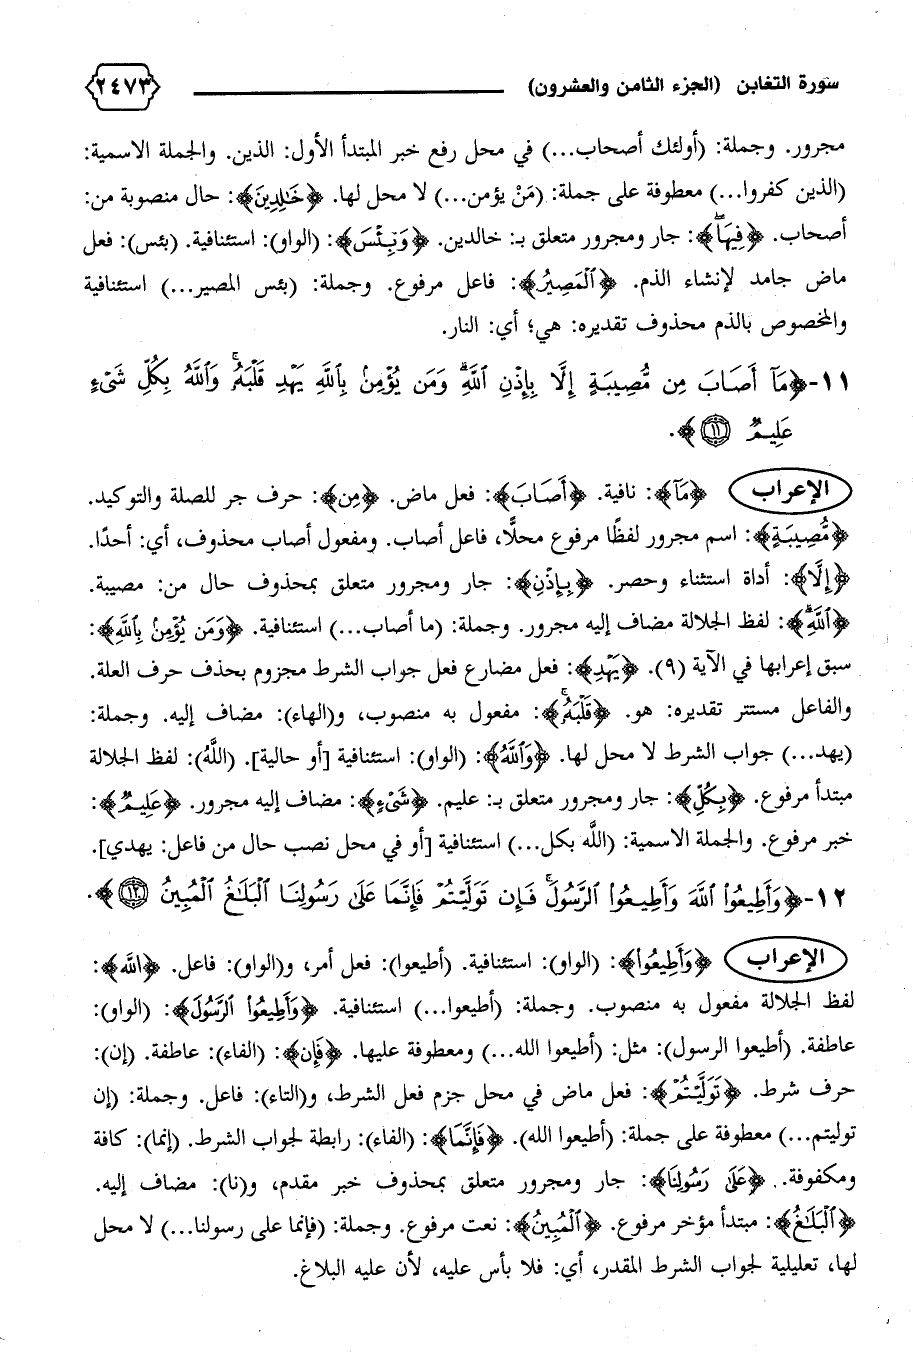 سورة التغابن (الجزء الثامن والعشرون) ٢٤٧٣
مجرور. وجملة: (أولئك أصحاب...) في محل رفع خبر المبتدأ الأول: الذين. والجملة الاسمية:
(الذين كفروا...) معطوفة على جملة: (مَنْ يؤمن...) لا محل لها. ﴿خَٰلِدِينَ﴾: حال منصوبة من:
أصحاب. ﴿فِيهَاۖ﴾: جار ومجرور متعلق بـ: خالدين. ﴿وَبِئْسَ﴾: (الواو): استئنافية. (بئس): فعل
ماض جامد لإنشاء الذم. ﴿ٱلْمَصِيرُ﴾: فاعل مرفوع. وجملة: (بئس المصير...) استئنافية
والمخصوص بالذم محذوف تقديره: هي؛ أي: النار.
١١-﴿مَآ أَصَابَ مِن مُّصِيبَةٍ إِلَّا بِإِذْنِ ٱللَّهِۗ وَمَن يُؤْمِنۢ بِٱللَّهِ يَهْدِ قَلْبَهُۥۚ وَٱللَّهُ بِكُلِّ شَىْءٍ
عَلِيمٌ ۝١١﴾.
الإعراب ﴿مَآ﴾: نافية. ﴿أَصَابَ﴾: فعل ماض. ﴿مِن﴾: حرف جر للصلة والتوكيد.
﴿مُّصِيبَةٍ﴾: اسم مجرور لفظًا مرفوع محلًّا، فاعل أصاب. ومفعول أصاب محذوف، أي: أحدًا.
﴿إِلَّا﴾: أداة استثناء وحصر. ﴿بِإِذْنِ﴾: جار ومجرور متعلق بمحذوف حال من: مصيبة.
﴿ٱللَّهِۗ﴾: لفظ الجلالة مضاف إليه مجرور. وجملة: (ما أصاب...) استئنافية. ﴿وَمَن يُؤْمِنۢ بِٱللَّهِ﴾:
سبق إعرابها في الآية (٩). ﴿يَهْدِ﴾: فعل مضارع فعل جواب الشرط مجزوم بحذف حرف العلة.
والفاعل مستتر تقديره: هو. ﴿قَلْبَهُۥۚ﴾: مفعول به منصوب، و(الهاء): مضاف إليه. وجملة:
(يهد...) جواب الشرط لا محل لها. ﴿وَٱللَّهُ﴾: (الواو): استئنافية [أو حالية]. (اللَّهُ): لفظ الجلالة
مبتدأ مرفوع. ﴿بِكُلِّ﴾: جار ومجرور متعلق بـ: عليم. ﴿شَىْءٍ﴾: مضاف إليه مجرور. ﴿عَلِيمٌ﴾:
خبر مرفوع. والجملة الاسمية: (اللَّه بكل...) استئنافية [أو في محل نصب حال من فاعل: يهدي].
١٢-﴿وَأَطِيعُوا۟ ٱللَّهَ وَأَطِيعُوا۟ ٱلرَّسُولَۚ فَإِن تَوَلَّيْتُمْ فَإِنَّمَا عَلَىٰ رَسُولِنَا ٱلْبَلَٰغُ ٱلْمُبِينُ ۝١٢﴾.
الإعراب ﴿وَأَطِيعُوا۟﴾: (الواو): استئنافية. (أطيعوا): فعل أمر، و(الواو): فاعل. ﴿اللَّه﴾:
لفظ الجلالة مفعول به منصوب. وجملة: (أطيعوا...) استئنافية. ﴿وَأَطِيعُوا۟ ٱلرَّسُولَ﴾: (الواو):
عاطفة. (أطيعوا الرسول): مثل: (أطيعوا الله...) ومعطوفة عليها. ﴿فَإِن﴾: (الفاء): عاطفة. (إن):
حرف شرط. ﴿تَوَلَّيْتُمْ﴾: فعل ماض في محل جزم فعل الشرط، و(التاء): فاعل. وجملة: (إن
توليتم...) معطوفة على جملة: (أطيعوا الله). ﴿فَإِنَّمَا﴾: (الفاء): رابطة لجواب الشرط. (إنما): كافة
ومكفوفة. ﴿عَلَىٰ رَسُولِنَا﴾: جار ومجرور متعلق بمحذوف خبر مقدم، و(نا): مضاف إليه.
﴿ٱلْبَلَٰغُ﴾: مبتدأ مؤخر مرفوع. ﴿ٱلْمُبِينُ﴾: نعت مرفوع. وجملة: (فإنما على رسولنا...) لا محل
لها، تعليلية لجواب الشرط المقدر، أي: فلا بأس عليه، لأن عليه البلاغ.